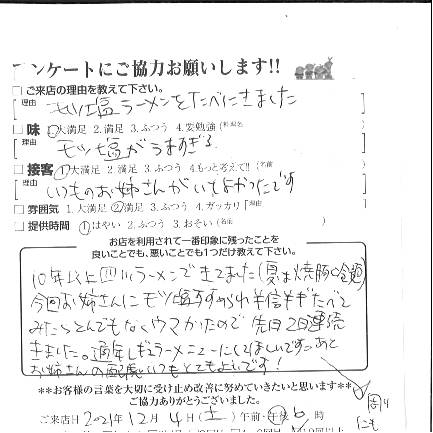 ンケートにご協力お願いします!!
□ご来店の理由を教えて下さい。
理由 モツ塩ラーメンをたべにきました
□味 ①大満足 2.満足 3.ふつう 4.要勉強(料理名
理由 モツ塩がうますぎる
□接客 ①大満足 2.満足 3.ふつう 4.もっと考えて!!(名前
理由 いつものお姉さんがいてよかったです
□雰囲気 1.大満足 ②満足 3.ふつう 4.ガッカリ「理由
□提供時間 ①はやい 2.ふつう 3.おそい(名前
お店を利用されて一番印象に残ったことを
良いことでも、悪いことでも1つだけ教えて下さい。
10年以上四川ラーメンできてました(夏は焼豚冷麺)
今回お姉さんにモツ塩すすめられ半信半ぎたべて
みたらとんでもなくウマかったので先日2日連続
きました。通年レギュラーメニューにしてほしいです。あと
お姉さんの配慮いつもとてもよいです!
**お客様の言葉を大切に受け止め改善に努めていきたいと思います**
ご協力ありがとうございました。
ご来店日 2021年12月4日(土) 午前・午後6時